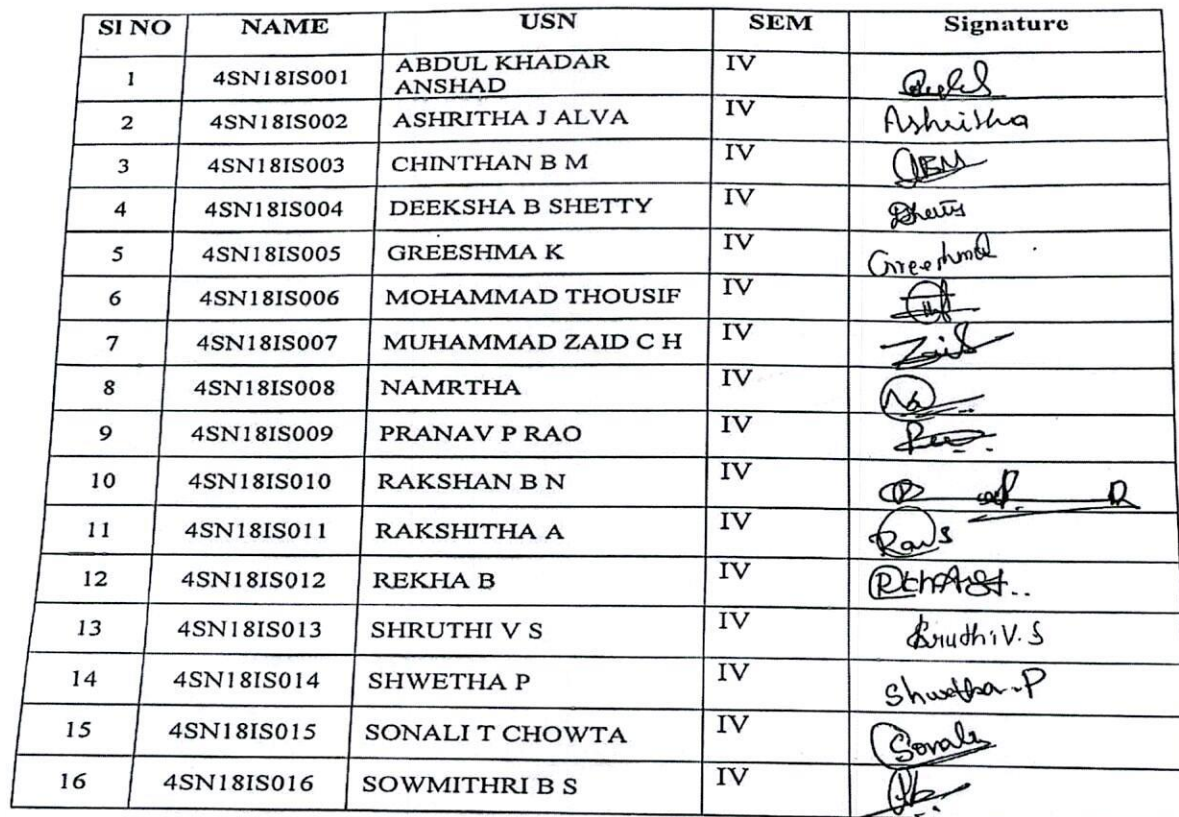 SI NO NAME USN SEM Signature
1 4SN18IS001 ABDUL KHADAR
ANSHAD IV
2 4SN18IS002 ASHRITHA J ALVA IV Ashritha
3 4SN18IS003 CHINTHAN B M IV
4 4SN18IS004 DEEKSHA B SHETTY IV
5 4SN18IS005 GREESHMA K IV Greeshma
6 4SN18IS006 MOHAMMAD THOUSIF IV
7 4SN18IS007 MUHAMMAD ZAID C H IV Zaid
8 4SN18IS008 NAMRTHA IV Na
9 4SN18IS009 PRANAV P RAO IV
10 4SN18IS010 RAKSHAN B N IV
11 4SN18IS011 RAKSHITHA A IV
12 4SN18IS012 REKHA B IV
13 4SN18IS013 SHRUTHI V S IV Sruthi V. S
14 4SN18IS014 SHWETHA P IV Shwetha. P
15 4SN18IS015 SONALI T CHOWTA IV Sonali
16 4SN18IS016 SOWMITHRI B S IV